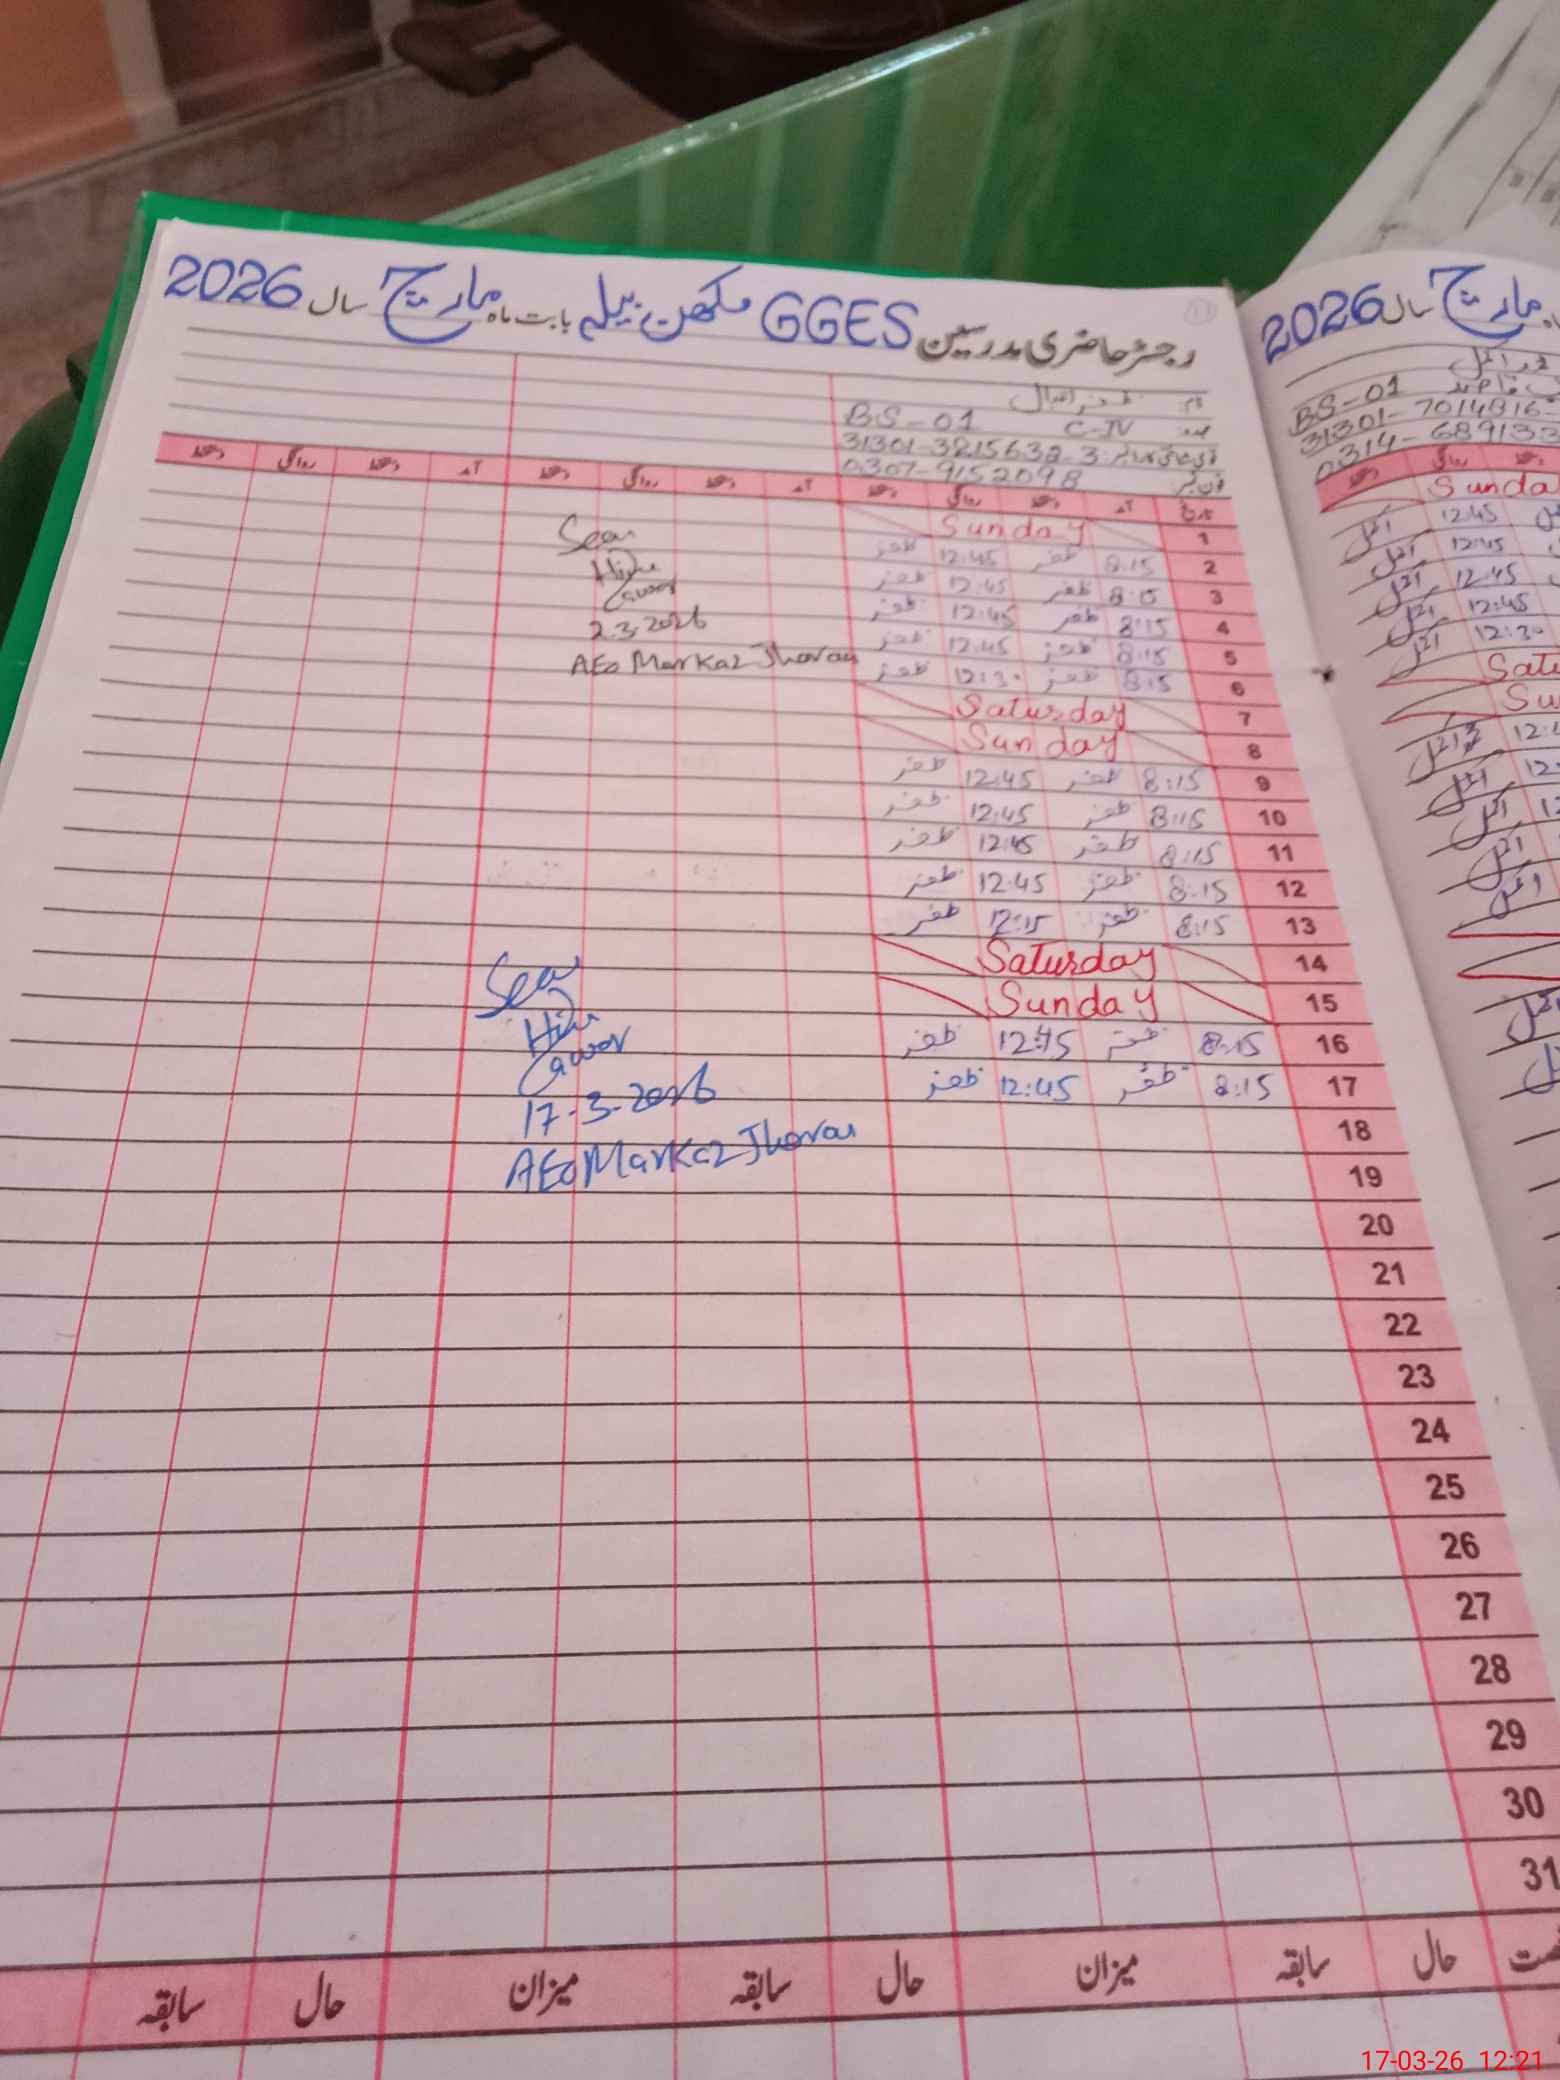 رجسٹر حاضری مدرسین GGES مکھن بیلہ بابت ماہ مارچ سال 2026
نام: ظفر اقبال
عہدہ: C-IV BS-01
31301-3215632-3
فون نمبر: 0307-9152098
تاریخ آمد دستخط روانگی دستخط آمد دستخط روانگی دستخط آمد دستخط روانگی دستخط
1 Sunday
2 8:15 ظفر 12:45 ظفر
3 8:15 ظفر 12:45 ظفر
4 8:15 ظفر 12:45 ظفر
5 8:15 ظفر 12:45 ظفر
6 8:15 ظفر 12:30 ظفر
7 Saturday
8 Sunday
9 8:15 ظفر 12:45 ظفر
10 8:15 ظفر 12:45 ظفر
11 8:15 ظفر 12:45 ظفر
12 8:15 ظفر 12:45 ظفر
13 8:15 ظفر 12:15 ظفر
14 Saturday
15 Sunday
16 8:15 ظفر 12:45 ظفر
17 8:15 ظفر 12:45 ظفر
18
19
20
21
22
23
24
25
26
27
28
29
30
31
حال سابقہ میزان حال سابقہ میزان حال سابقہ
Seen
2.3.2026
AEO Markaz Jhorau
Seen
17-3-2026
AEO Markaz Jhorau
مارچ سال 2026
BS-01
31301-7014816-
0314-689133
دستخط روانگی دستخط
Sunda
12:45
12:45
12:45
12:45
12:30
Satu
Su
17-03-26 12:21